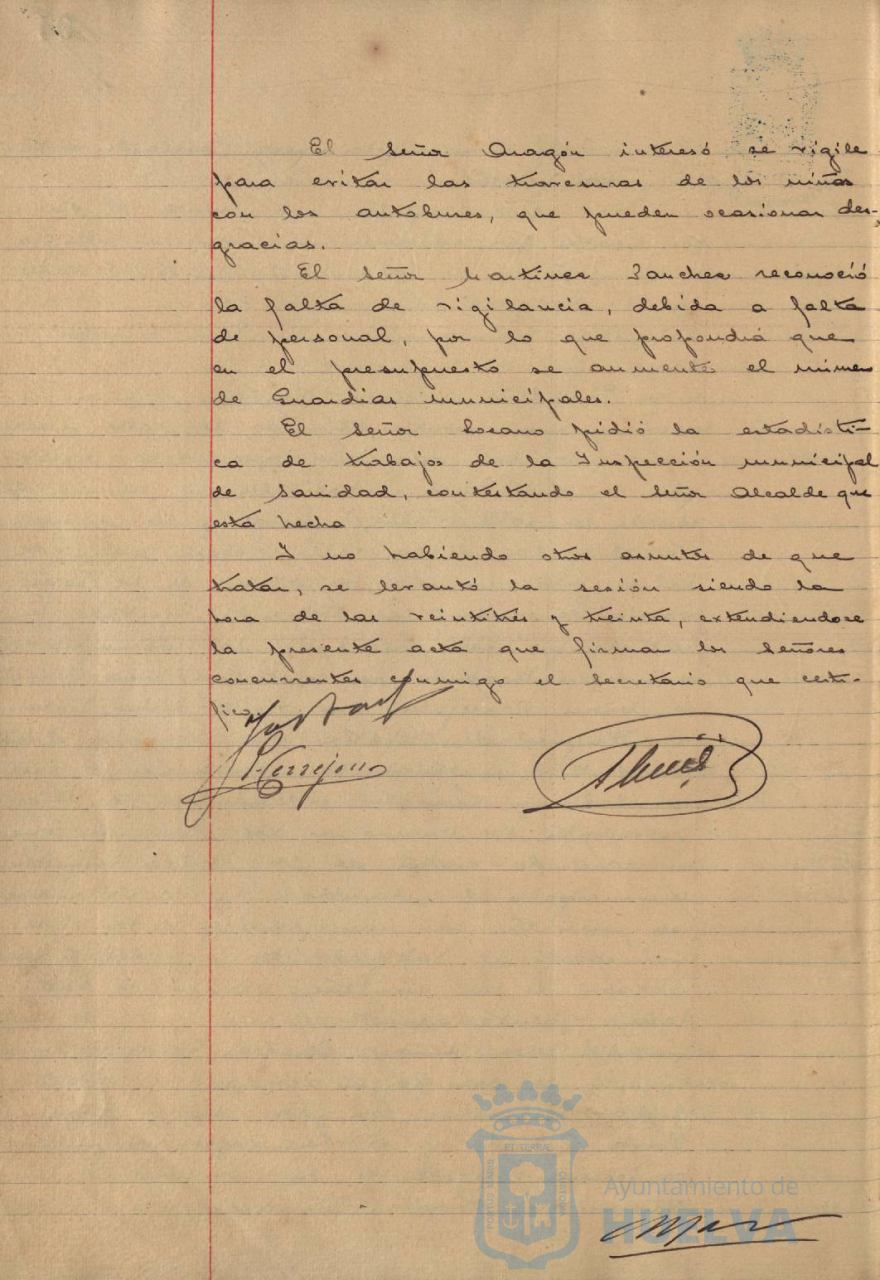 El señor Aragón interesó se vigile
para evitar las travesuras de los niños
con los autobuses, que pueden ocasionar des-
gracias.
El señor Martinez Sanchez reconoció
la falta de vigilancia, debida a falta
de personal, por lo que propondrá que
en el presupuesto se aumente el número
de Guardias municipales.
El señor Lozano pidió la estadísti-
ca de trabajos de la Inspección municipal
de Sanidad, contestando el señor Alcalde que
está hecha
Y no habiendo otros asuntos de que
tratar, se levantó la sesión siendo la
hora de las veintitrés y treinta, extendiendose
la presente acta que firman los señores
concurrentes conmigo el Secretario que certi-
fico.
Ayuntamiento de
HUELVA